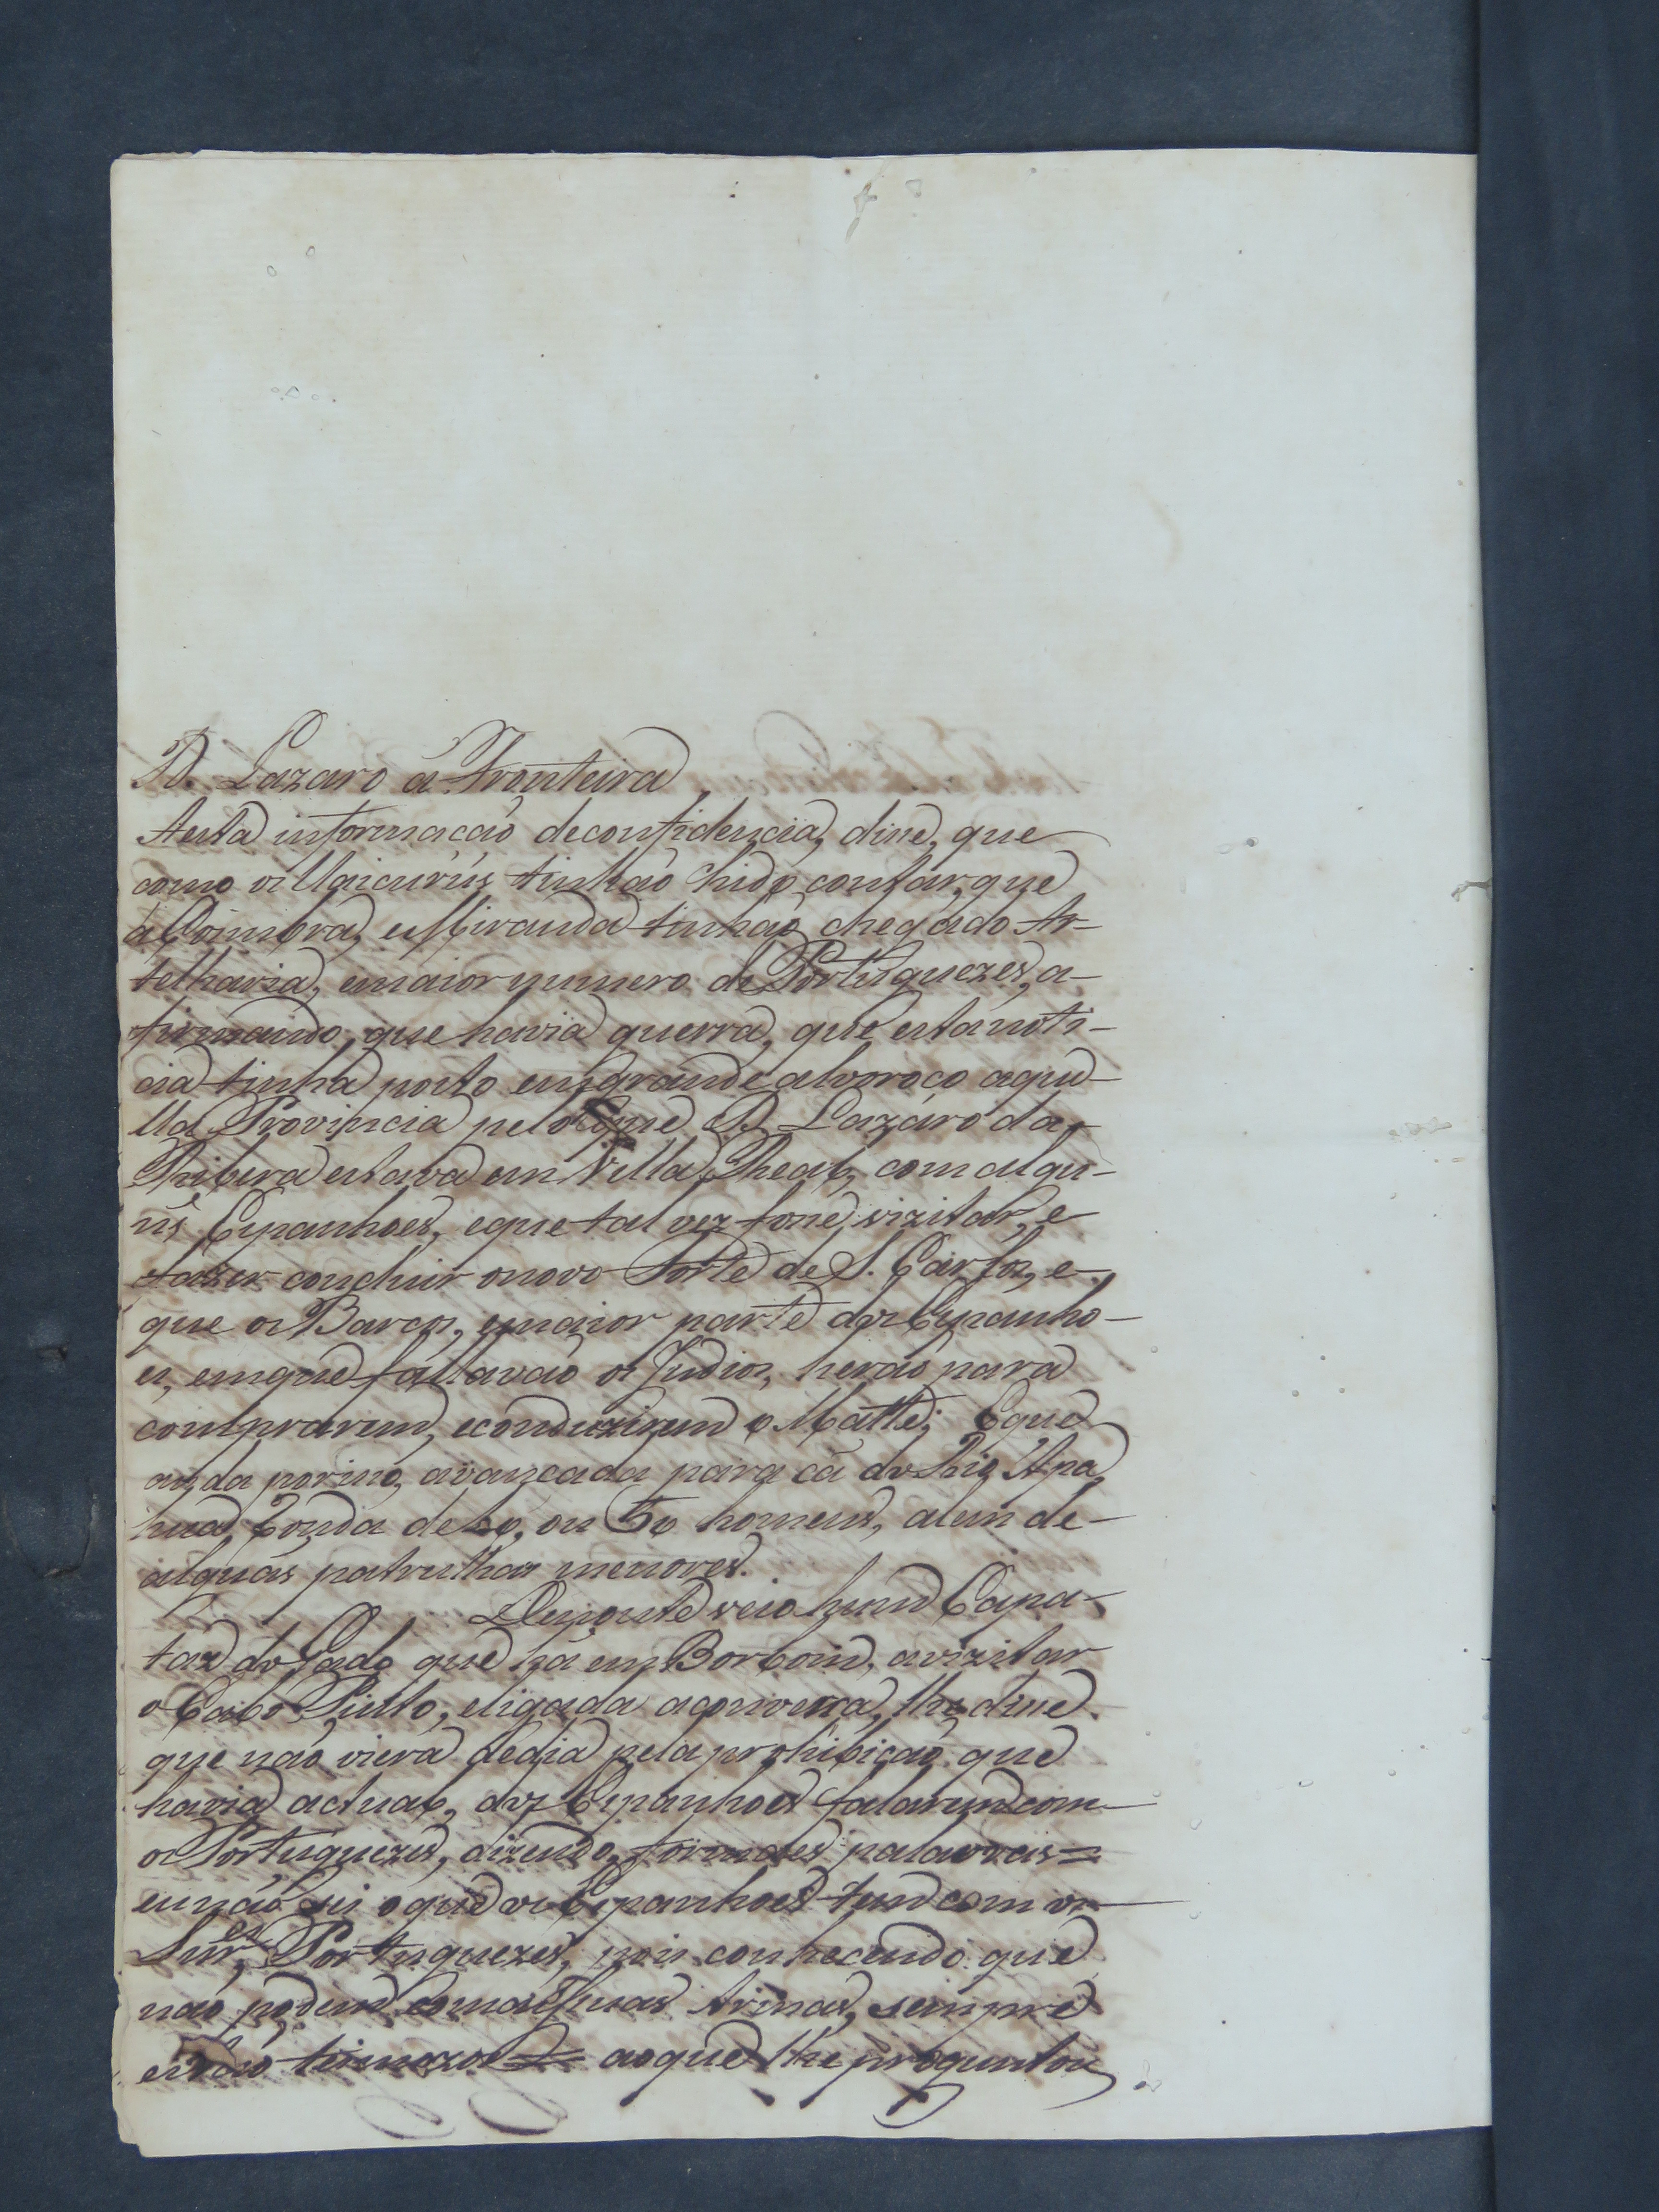 D. Lazaro á Fronteira
Aesta informação deconfidencia, disse, que
como os Uaicurús tinhão hido contar, que
a Coimbra, eMiranda tinhão chegado Ar-
telharia, emaior numero de Portuguezes, a-
firmando, que havia guerra, que esta noti-
cia tinha posto em grande alvoroço aque-
lla Provincia pelo que D. Lazaro da
Ribera estava em Villa Real, com algu-
ns Espanhoes, eque tal vez fosse vizitar, e
fazer concluir o novo Forte de S. Carlos, e
que os Barcos, emaior parte dos Espanho-
es, emque fallavão os Indios, herão para
comprarem, econduzirem o Matte; Eque
anda por isso avançada para cá do Rio Apa
hua Ronda de 40, ou 50 homens, alem de
alguãs patrulhas menores.
Depois de veio hum Capa-
taz do Gado que há em Borbom, avizitar
o Cabo Pinto, eligada aconversa, lhe disse
que não viera dedia pela prohibição que
havia actual, dos Espanhoes falarem com
os Portuguezes, dizendo formaes palavras =
eu não sei oque os Espanhoes tem com os
Snr.es Portuguezes, pois conhecendo que
não podem com as suas Armas, sempre
estão teimozos = aoque lhe preguntou